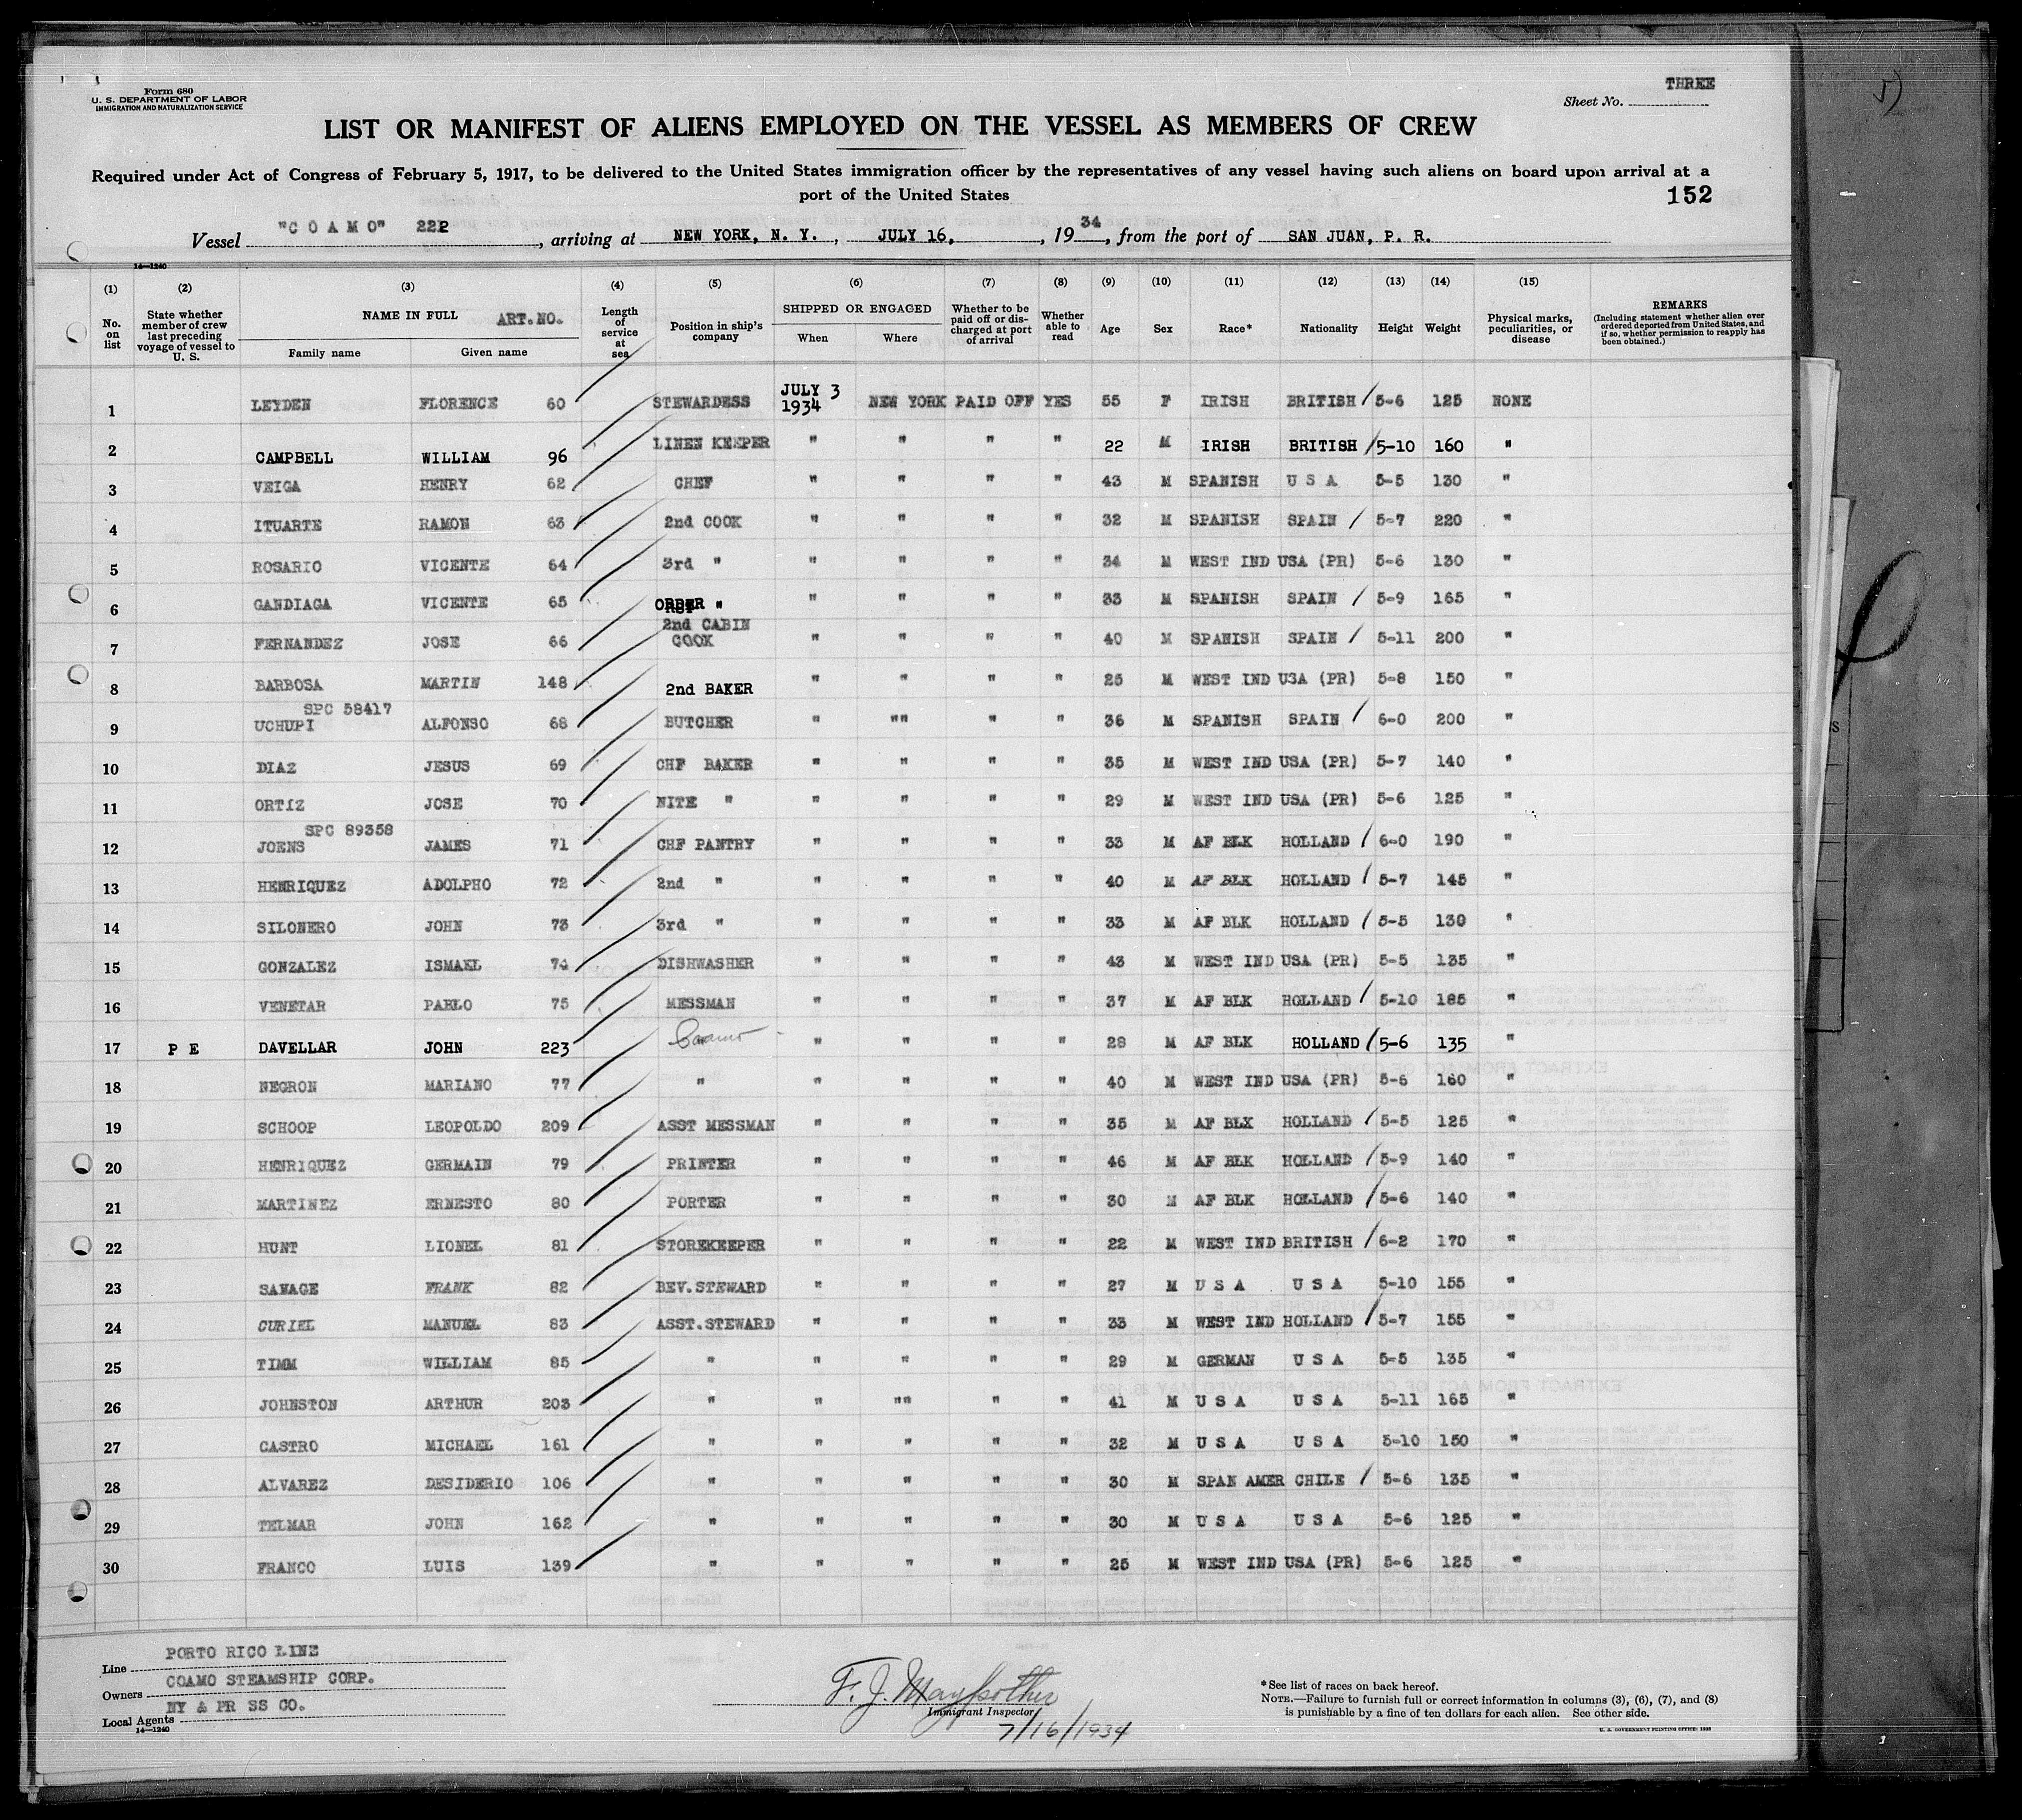 Form 680
U. S. DEPARTMENT OF LABOR
IMMIGRATION AND NATURALIZATION SERVICE
THREE
Sheet No.
LIST OR MANIFEST OF ALIENS EMPLOYED ON THE VESSEL AS MEMBERS OF CREW
Required under Act of Congress of February 5, 1917, to be delivered to the United States immigration officer by the representatives of any vessel having such aliens on board upon arrival at a
port of the United States
152
Vessel "C O A M O" 222, arriving at NEW YORK, N. Y., JULY 16, 1934, from the port of SAN JUAN, P. R.
14—1240
(1) (2) (3) (4) (5) (6) (7) (8) (9) (10) (11) (12) (13) (14) (15)
No. on list
State whether member of crew last preceding voyage of vessel to U. S.
NAME IN FULL ART. NO.
Family name Given name
Length of service at sea
Position in ship's company
SHIPPED OR ENGAGED
When Where
Whether to be paid off or discharged at port of arrival
Whether able to read
Age Sex Race* Nationality Height Weight
Physical marks, peculiarities, or disease
REMARKS
(Including statement whether alien ever ordered deported from United States, and if so, whether permission to reapply has been obtained.)
1 LEYDEN FLORENCE 60 STEWARDESS JULY 3 1934 NEW YORK PAID OFF YES 55 F IRISH BRITISH / 5-6 125 NONE
2 CAMPBELL WILLIAM 96 LINEN KEEPER " " " " 22 M IRISH BRITISH / 5-10 160 "
3 VEIGA HENRY 62 CHEF " " " " 43 M SPANISH U S A 5-5 130 "
4 ITUARTE RAMON 63 2nd COOK " " " " 32 M SPANISH SPAIN / 5-7 220 "
5 ROSARIO VICENTE 64 3rd " " " " " 34 M WEST IND USA (PR) 5-6 130 "
6 GANDIAGA VICENTE 65 ORDER " " " " " 33 M SPANISH SPAIN / 5-9 165 "
7 FERNANDEZ JOSE 66 2nd CABIN COOK " " " " 40 M SPANISH SPAIN / 5-11 200 "
8 BARBOSA MARTIN 148 2nd BAKER " " " " 25 M WEST IND USA (PR) 5-8 150 "
SPC 58417
9 UCHUPI ALFONSO 68 BUTCHER " "" " " 36 M SPANISH SPAIN / 6-0 200 "
10 DIAZ JESUS 69 CHF BAKER " " " " 35 M WEST IND USA (PR) 5-7 140 "
11 ORTIZ JOSE 70 NITE " " " " " 29 M WEST IND USA (PR) 5-6 125 "
SPC 89358
12 JOENS JAMES 71 CHF PANTRY " " " " 33 M AF BLK HOLLAND / 6-0 190 "
13 HENRIQUEZ ADOLPHO 72 2nd " " " " " 40 M AF BLK HOLLAND / 5-7 145 "
14 SILONERO JOHN 73 3rd " " " " " 33 M AF BLK HOLLAND / 5-5 130 "
15 GONZALEZ ISMAEL 74 DISHWASHER " " " " 43 M WEST IND USA (PR) 5-5 135 "
16 VENETAR PABLO 75 MESSMAN " " " " 37 M AF BLK HOLLAND / 5-10 185 "
17 P E DAVELLAR JOHN 223 Coamo " " " " 28 M AF BLK HOLLAND / 5-6 135 "
18 NEGRON MARIANO 77 " " " " " 40 M WEST IND USA (PR) 5-6 160 "
19 SCHOOP LEOPOLDO 209 ASST MESSMAN " " " " 35 M AF BLK HOLLAND / 5-5 125 "
20 HENRIQUEZ GERMAIN 79 PRINTER " " " " 46 M AF BLK HOLLAND / 5-9 140 "
21 MARTINEZ ERNESTO 80 PORTER " " " " 30 M AF BLK HOLLAND / 5-6 140 "
22 HUNT LIONEL 81 STOREKEEPER " " " " 22 M WEST IND BRITISH / 6-2 170 "
23 SAVAGE FRANK 82 BEV. STEWARD " " " " 27 M U S A U S A 5-10 155 "
24 CURIEL MANUEL 83 ASST. STEWARD " " " " 33 M WEST IND HOLLAND / 5-7 155 "
25 TIMM WILLIAM 85 " " " " " 29 M GERMAN U S A 5-5 135 "
26 JOHNSTON ARTHUR 203 " " "" " " 41 M U S A U S A 5-11 165 "
27 CASTRO MICHAEL 161 " " " " " 32 M U S A U S A 5-10 150 "
28 ALVAREZ DESIDERIO 106 " " " " " 30 M SPAN AMER CHILE / 5-6 135 "
29 TELMAR JOHN 162 " " " " " 30 M U S A U S A 5-6 125 "
30 FRANCO LUIS 139 " " " " " 25 M WEST IND USA (PR) 5-6 125 "
Line PORTO RICO LINE
Owners COAMO STEAMSHIP CORP.
Local Agents NY & PR SS CO.
14—1240
F. J.
Immigrant Inspector
7/16/1934
*See list of races on back hereof.
NOTE.—Failure to furnish full or correct information in columns (3), (6), (7), and (8)
is punishable by a fine of ten dollars for each alien. See other side.
U. S. GOVERNMENT PRINTING OFFICE: 1933